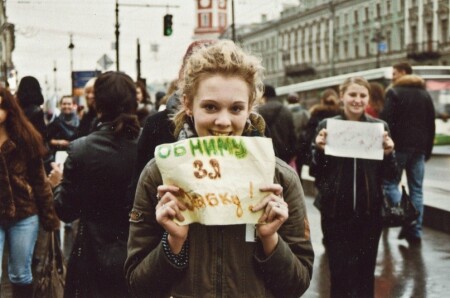 ОБНИМУ
ЗА
улыбку !